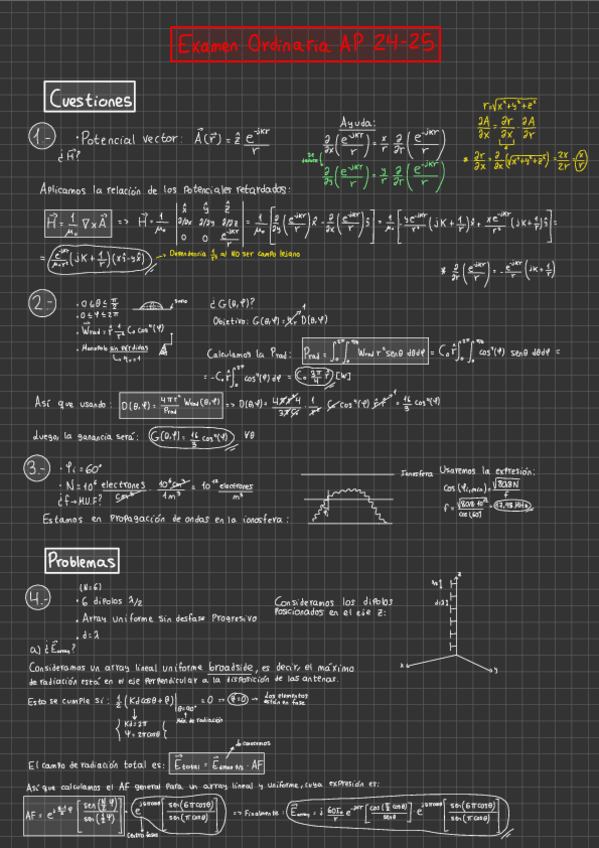 Examen Ordinaria AP 24-25
Cuestiones
1.-
· Potencial vector: A⃗(r⃗) = ẑ e^{-jkr}/r
¿H⃗?
Ayuda:
∂/∂x (e^{-jkr}/r) = x/r ∂/∂r (e^{-jkr}/r)
∂/∂y (e^{-jkr}/r) = y/r ∂/∂r (e^{-jkr}/r)
r=√(x²+y²+z²)
∂A/∂x = ∂r/∂x · ∂A/∂r
* ∂r/∂x = ∂/∂x (√(x²+y²+z²)) = 2x/2r = x/r
Aplicamos la relación de los Potenciales retardados:
H⃗ = 1/μ₀ ∇×A⃗ => H⃗ = 1/μ₀ | x̂ ŷ ẑ ; ∂/∂x ∂/∂y ∂/∂z ; 0 0 e^{-jkr}/r | = 1/μ₀ [∂/∂y (e^{-jkr}/r) x̂ - ∂/∂x (e^{-jkr}/r) ŷ] = 1/μ₀ [- y e^{-jkr}/r² (jk + 1/r) x̂ + x e^{-jkr}/r² (jk + 1/r) ŷ] =
= e^{-jkr}/(μ₀ r²) (jk + 1/r)(xŷ - yx̂)
Dependencia 1/r² al NO ser campo lejano
* ∂/∂r (e^{-jkr}/r) = - e^{-jkr}/r (jk + 1/r)
2.-
· 0 ≤ θ ≤ π/2
suelo
· 0 ≤ φ ≤ 2π
· W⃗rad = r̂ 1/r² C₀ cos⁴(φ)
· Monopolo sin pérdidas
¿G(θ,φ)?
Objetivo: G(θ,φ) = η · D(θ,φ)
Calculamos la Prad: Prad = ∫₀^{2π} ∫₀^{π/2} Wrad r² senθ dθ dφ = C₀ ∫₀^{2π} ∫₀^{π/2} cos⁴(φ) senθ dθ dφ =
= -C₀ ∫₀^{2π} cos⁴(φ) dφ = C₀ 3π/4 [W]
Así que usando: D(θ,φ) = 4πr²/Prad Wrad(θ,φ) => D(θ,φ) = = 16/3 cos⁴(φ)
Luego, la ganancia será: G(θ,φ) = 16/3 cos⁴(φ) ∀θ
3.-
· φi = 60°
· N = 10⁶ electrones/cm³ 10⁶ cm³/1m³ = 10¹² electrones/m³
¿f → M.U.F?
Estamos en Propagación de ondas en la ionosfera:
Ionosfera
Usaremos la expresión:
cos(φi,min) = √(80.8N)/f
f = √(80.8·10¹²)/cos(60) = 17.98 MHz
Problemas
4.-
(N=6)
· 6 dipolos λ/2
· Array uniforme sin desfase Progresivo
· d = λ
Consideramos los dipolos
Posicionados en el eje z:
z
x
y
a) ¿E⃗array?
Consideramos un array lineal uniforme broadside, es decir, el máximo
de radiación está en el eje perpendicular a la disposición de las antenas.
Esto se cumple si: 1/2 (Kd cosθ + β)|θ=90° = 0 → β=0 → Los elementos están en fase
Kd = 2π
Ψ = 2π cosθ
Máx de radiación
lo conocemos
El campo de radiación total es: E⃗total = E⃗ · AF
Así que calculamos el AF general para un array lineal y uniforme, cuya expresión es:
AF = [sen(N/2 Ψ)/sen(1/2 Ψ)] = [sen(6π cosθ)/sen(π cosθ)] => Finalmente: E⃗array = j 60I₀/r e^{-jkr} [cos(π/2 cosθ)/senθ] e^{j5π cosθ} [sen(6π cosθ)/sen(π cosθ)]
Centro fase